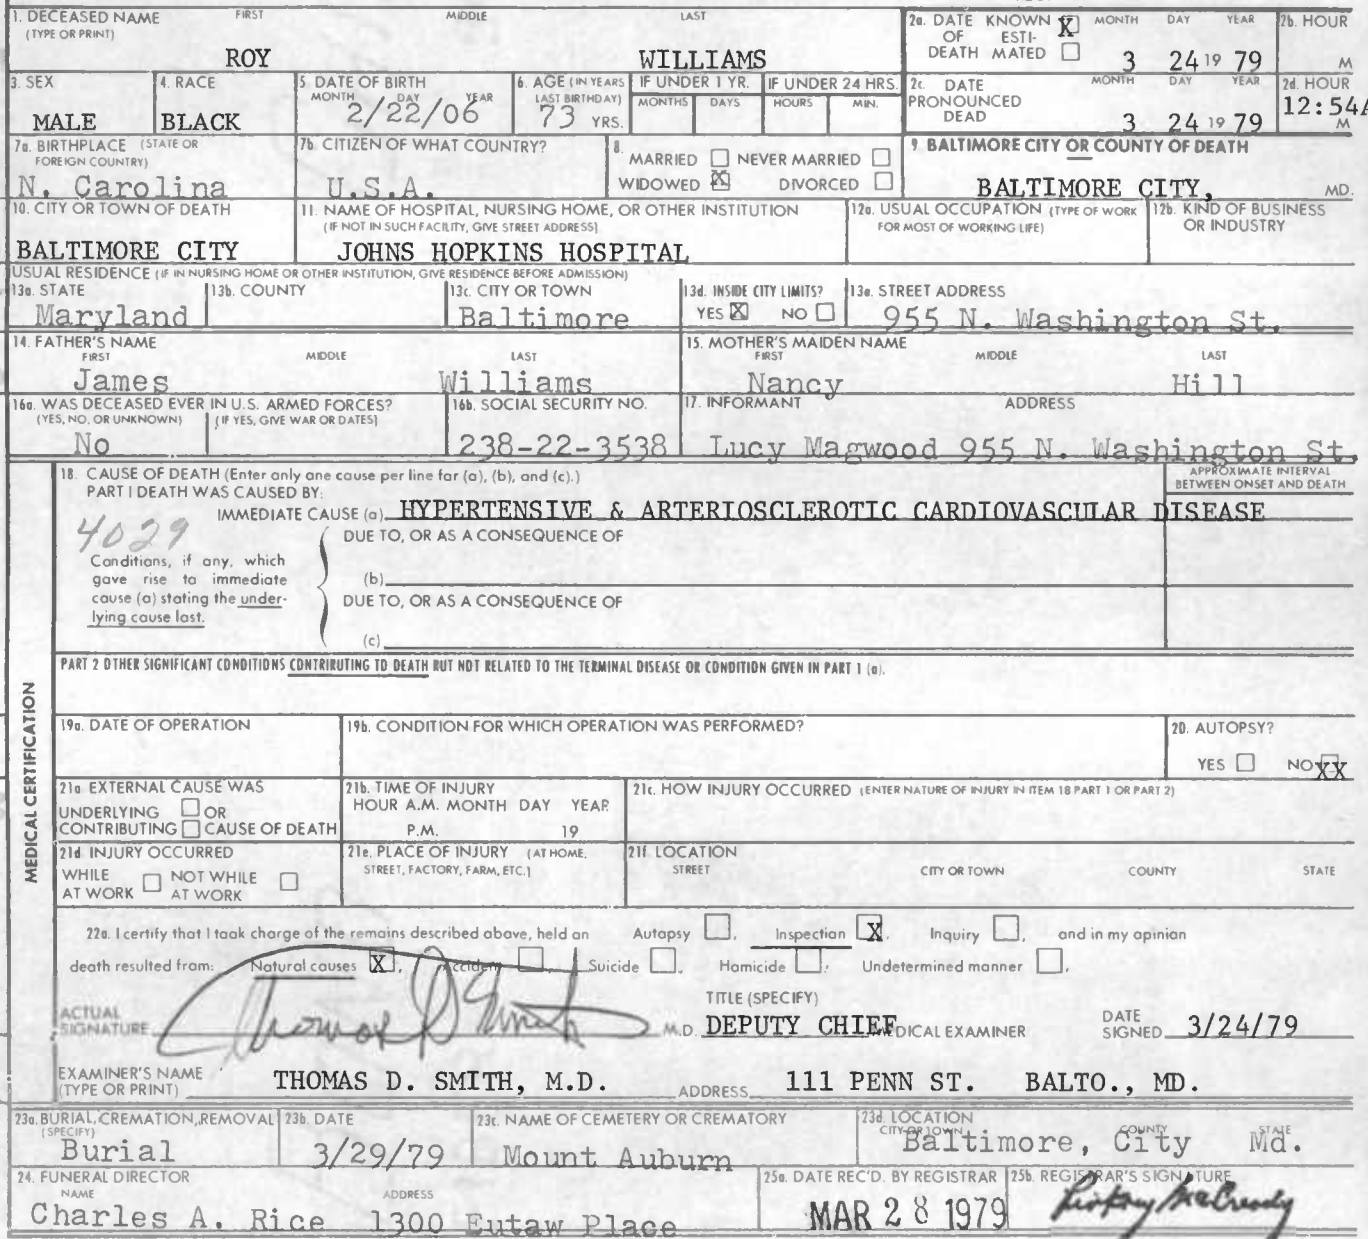 1. DECEASED NAME FIRST MIDDLE LAST
(TYPE OR PRINT)
ROY WILLIAMS
2a. DATE KNOWN X MONTH DAY YEAR
OF ESTI-
DEATH MATED
3 24 19 79
2b. HOUR
M
3. SEX
MALE
4. RACE
BLACK
5. DATE OF BIRTH
MONTH DAY YEAR
2/22/06
6. AGE (IN YEARS
LAST BIRTHDAY)
73 YRS.
IF UNDER 1 YR.
MONTHS DAYS
IF UNDER 24 HRS.
HOURS MIN.
2c. DATE MONTH DAY YEAR
PRONOUNCED
DEAD
3 24 19 79
2d. HOUR
12:54A
M
7a. BIRTHPLACE (STATE OR
FOREIGN COUNTRY)
N. Carolina
7b. CITIZEN OF WHAT COUNTRY?
U.S.A.
8.
MARRIED NEVER MARRIED
WIDOWED X DIVORCED
9. BALTIMORE CITY OR COUNTY OF DEATH
BALTIMORE CITY, MD.
10. CITY OR TOWN OF DEATH
BALTIMORE CITY
11. NAME OF HOSPITAL, NURSING HOME, OR OTHER INSTITUTION
(IF NOT IN SUCH FACILITY, GIVE STREET ADDRESS)
JOHNS HOPKINS HOSPITAL
12a. USUAL OCCUPATION (TYPE OF WORK
FOR MOST OF WORKING LIFE)
12b. KIND OF BUSINESS
OR INDUSTRY
USUAL RESIDENCE (IF IN NURSING HOME OR OTHER INSTITUTION, GIVE RESIDENCE BEFORE ADMISSION)
13a. STATE
Maryland
13b. COUNTY
13c. CITY OR TOWN
Baltimore
13d. INSIDE CITY LIMITS?
YES X NO
13e. STREET ADDRESS
955 N. Washington St.
14. FATHER'S NAME
FIRST MIDDLE LAST
James Williams
15. MOTHER'S MAIDEN NAME
FIRST MIDDLE LAST
Nancy Hill
16a. WAS DECEASED EVER IN U.S. ARMED FORCES?
(YES, NO, OR UNKNOWN) (IF YES, GIVE WAR OR DATES)
No
16b. SOCIAL SECURITY NO.
238-22-3538
17. INFORMANT ADDRESS
Lucy Magwood 955 N. Washington St.
18. CAUSE OF DEATH (Enter only one cause per line for (a), (b), and (c).)
PART I DEATH WAS CAUSED BY:
APPROXIMATE INTERVAL
BETWEEN ONSET AND DEATH
IMMEDIATE CAUSE (a) HYPERTENSIVE & ARTERIOSCLEROTIC CARDIOVASCULAR DISEASE
4029
DUE TO, OR AS A CONSEQUENCE OF
Conditions, if any, which
gave rise to immediate
cause (a) stating the under-
lying cause last.
(b)
DUE TO, OR AS A CONSEQUENCE OF
(c)
MEDICAL CERTIFICATION
PART 2 OTHER SIGNIFICANT CONDITIONS CONTRIBUTING TO DEATH BUT NOT RELATED TO THE TERMINAL DISEASE OR CONDITION GIVEN IN PART 1 (a).
19a. DATE OF OPERATION
19b. CONDITION FOR WHICH OPERATION WAS PERFORMED?
20. AUTOPSY?
YES NO XX
21a EXTERNAL CAUSE WAS
UNDERLYING OR
CONTRIBUTING CAUSE OF DEATH
21b. TIME OF INJURY
HOUR A.M. MONTH DAY YEAR
P.M. 19
21c. HOW INJURY OCCURRED (ENTER NATURE OF INJURY IN ITEM 18 PART 1 OR PART 2)
21d INJURY OCCURRED
WHILE NOT WHILE
AT WORK AT WORK
21e. PLACE OF INJURY (AT HOME,
STREET, FACTORY, FARM, ETC.)
21f. LOCATION
STREET CITY OR TOWN COUNTY STATE
22a. I certify that I took charge of the remains described above, held an Autopsy , Inspection X, Inquiry , and in my opinion
death resulted from: Natural causes X, Accident , Suicide , Homicide , Undetermined manner ,
ACTUAL
SIGNATURE Thomas D Smith M.D.
TITLE (SPECIFY)
DEPUTY CHIEF MEDICAL EXAMINER
DATE
SIGNED 3/24/79
EXAMINER'S NAME
(TYPE OR PRINT) THOMAS D. SMITH, M.D. ADDRESS 111 PENN ST. BALTO., MD.
23a. BURIAL, CREMATION, REMOVAL
(SPECIFY)
Burial
23b. DATE
3/29/79
23c. NAME OF CEMETERY OR CREMATORY
Mount Auburn
23d. LOCATION
CITY OR TOWN COUNTY STATE
Baltimore, City Md.
24. FUNERAL DIRECTOR
NAME ADDRESS
Charles A. Rice 1300 Eutaw Place
25a. DATE REC'D. BY REGISTRAR
MAR 28 1979
25b. REGISTRAR'S SIGNATURE